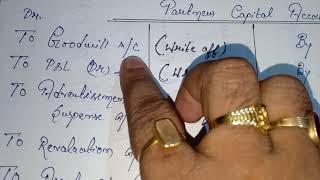 Dr. Partners Capital Accou
To Goodwill A/C (Write off) By
To P&L (Dr) (W By
To Advertisement
Suspense
To Revaluation
To